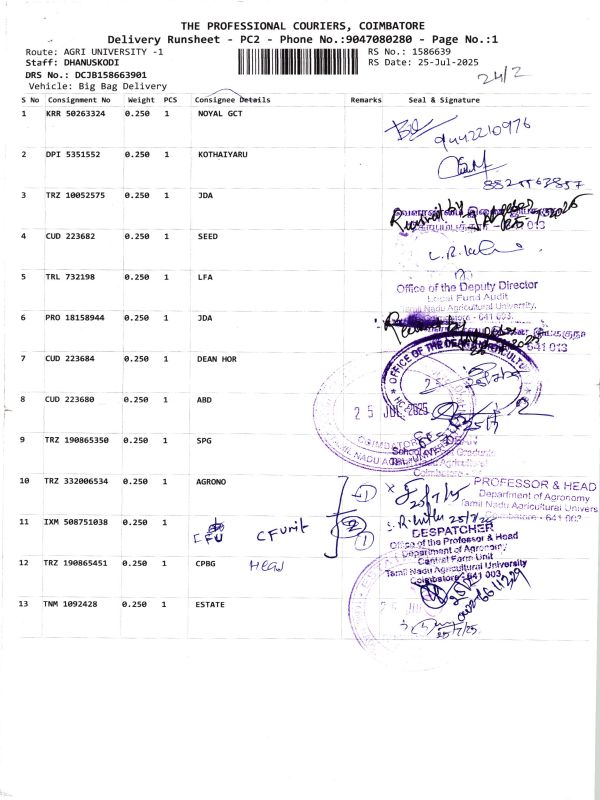 THE PROFESSIONAL COURIERS, COIMBATORE
Delivery Runsheet - PC2 - Phone No.:9047080280 - Page No.:1
Route: AGRI UNIVERSITY -1
RS No.: 1586639
Staff: DHANUSKODI
RS Date: 25-Jul-2025
DRS No.: DCJB158663901
24/2
Vehicle: Big Bag Delivery
S No Consignment No Weight PCS Consignee Details Remarks Seal & Signature
1 KRR 50263324 0.250 1 NOYAL GCT
9442210976
2 DPI 5351552 0.250 1 KOTHAIYARU
3 TRZ 10052575 0.250 1 JDA
Received by
4 CUD 223682 0.250 1 SEED
5 TRL 732198 0.250 1 LFA
Office of the Deputy Director
Local Fund Audit
Tamil Nadu Agricultural University,
Coimbatore - 641 003.
6 PRO 18158944 0.250 1 JDA
7 CUD 223684 0.250 1 DEAN HOR
OFFICE OF THE DEAN
8 CUD 223680 0.250 1 ABD
25 JUL 2025
9 TRZ 190865350 0.250 1 SPG
COIMBATORE
TAMIL NADU AGRICULTURAL
DEAN
School of Post Graduate
10 TRZ 332006534 0.250 1 AGRONO
① 25/7/25
PROFESSOR & HEAD
Department of Agronomy
Tamil Nadu Agricultural Univers
Coimbatore - 641 003
11 IXM 508751038 0.250 1
CFU CFUnit ② ①
25/7/25
DESPATCHER
Office of the Professor & Head
Department of Agronomy
Central Farm Unit
Tamil Nadu Agricultural University
Coimbatore - 641 003.
12 TRZ 190865451 0.250 1 CPBG
Head
13 TNM 1092428 0.250 1 ESTATE
25/7/25